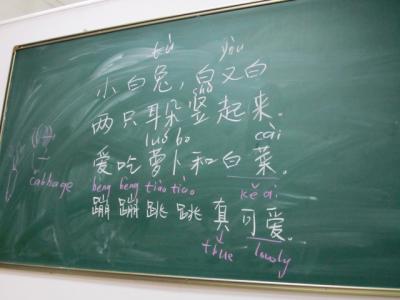 tù yòu
小白兔,白又白
shù
两只耳朵竖起来.
luó bo cài
爱吃萝卜和白菜.
cabbage
beng beng tiào tiào kě ài
蹦蹦跳跳真可爱.
true lovely